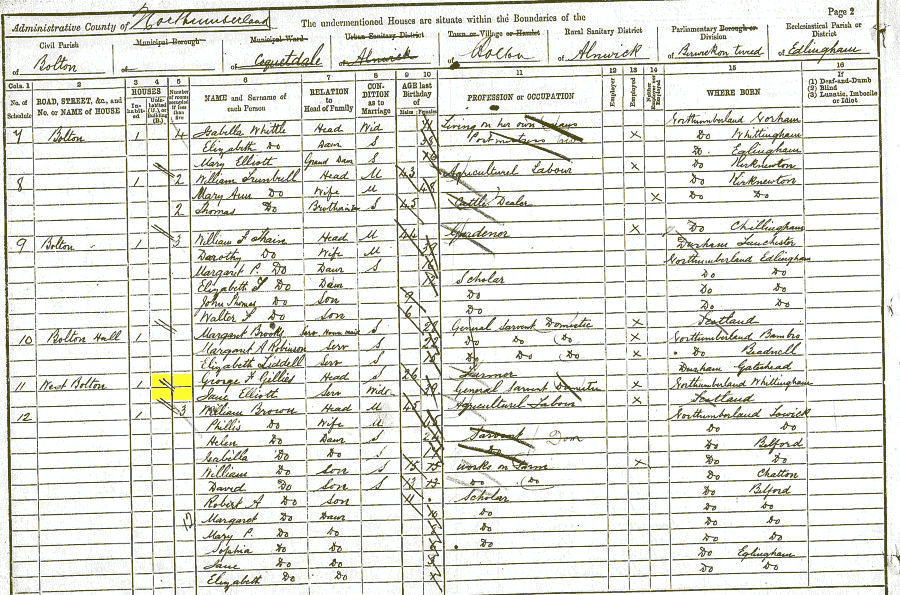 Page 2
Administrative County of Northumberland
The undermentioned Houses are situate within the Boundaries of the
Civil Parish of Bolton
Municipal Borough of
Municipal Ward of Coquetdale
Urban Sanitary District of Alnwick
Town or Village or Hamlet of Bolton
Rural Sanitary District of Alnwick
Parliamentary Borough or Division of Berwick on Tweed
Ecclesiastical Parish or District of Edlingham
Cols. 1 2 3 4 5 6 7 8 9 10 11 12 13 14 15 16
No. of Schedule
ROAD, STREET, &c., and No. or NAME of HOUSE
HOUSES
Inhabited
Uninhabited (U.), or Building (B.)
Number of rooms occupied if less than five
NAME and Surname of each Person
RELATION to Head of Family
CONDITION as to Marriage
AGE last Birthday of
Males Females
PROFESSION or OCCUPATION
Employer
Employed
Neither Employer nor Employed
WHERE BORN
If (1) Deaf-and-Dumb (2) Blind (3) Lunatic, Imbecile or Idiot
7 Bolton 1 4 Isabella Whittle Head Wid Living on her own means Northumberland
Elizabeth Do Daur S x Do Whittingham
Mary Elliott Grand Daur S Do Eglingham
8 1 2 William Turnbull Head M 43 Agricultural Labour x Do Kirknewton
Mary Ann Do Wife M 48 Do Kirknewton
2 Thomas Do S 45 Cattle Dealer x Do Do
9 Bolton 1 3 William Head M 44 Gardener x Do Chillingham
Dorothy Do Wife M 38 Durham Lanchester
Margaret Do Daur S 16 Northumberland Edlingham
Elizabeth Do Daur 12 Scholar Do Do
John Thomas Do Son 9 Do Do Do
Walter Do Son 6 Do Do Do
10 Bolton Hall 1 Margaret Serv S 28 General Servant Domestic x Scotland
Margaret A Robinson Serv S 22 Do Do (Do x Northumberland Bambro
Elizabeth Liddell Serv S 18 Do Do (Do x Do Beadnell
11 West Bolton 1 George Gillies Head S 26 Farmer Durham Gateshead
Jane Elliott Serv Wid 39 General Servant Domestic x Northumberland Whittingham
12 1 3 William Brown Head M 45 Agricultural Labour x Scotland
Phillis Do Wife M Northumberland Lowick
Helen Do Daur S Servant Dom Do Do
Isabella Do Do S Do Do Belford
William Do Son S 15 works on Farm x Do Do
David Do Son S 13 Do (Do Do Chatton
Robert A Do Son 11 Scholar Do Belford
12 Margaret Do Daur 10 Do Do Do
Mary Do Do Do Do Do
Sophia Do Do Do Do Do
Jane Do Do Do Eglingham
Elizabeth Do Do Do Do